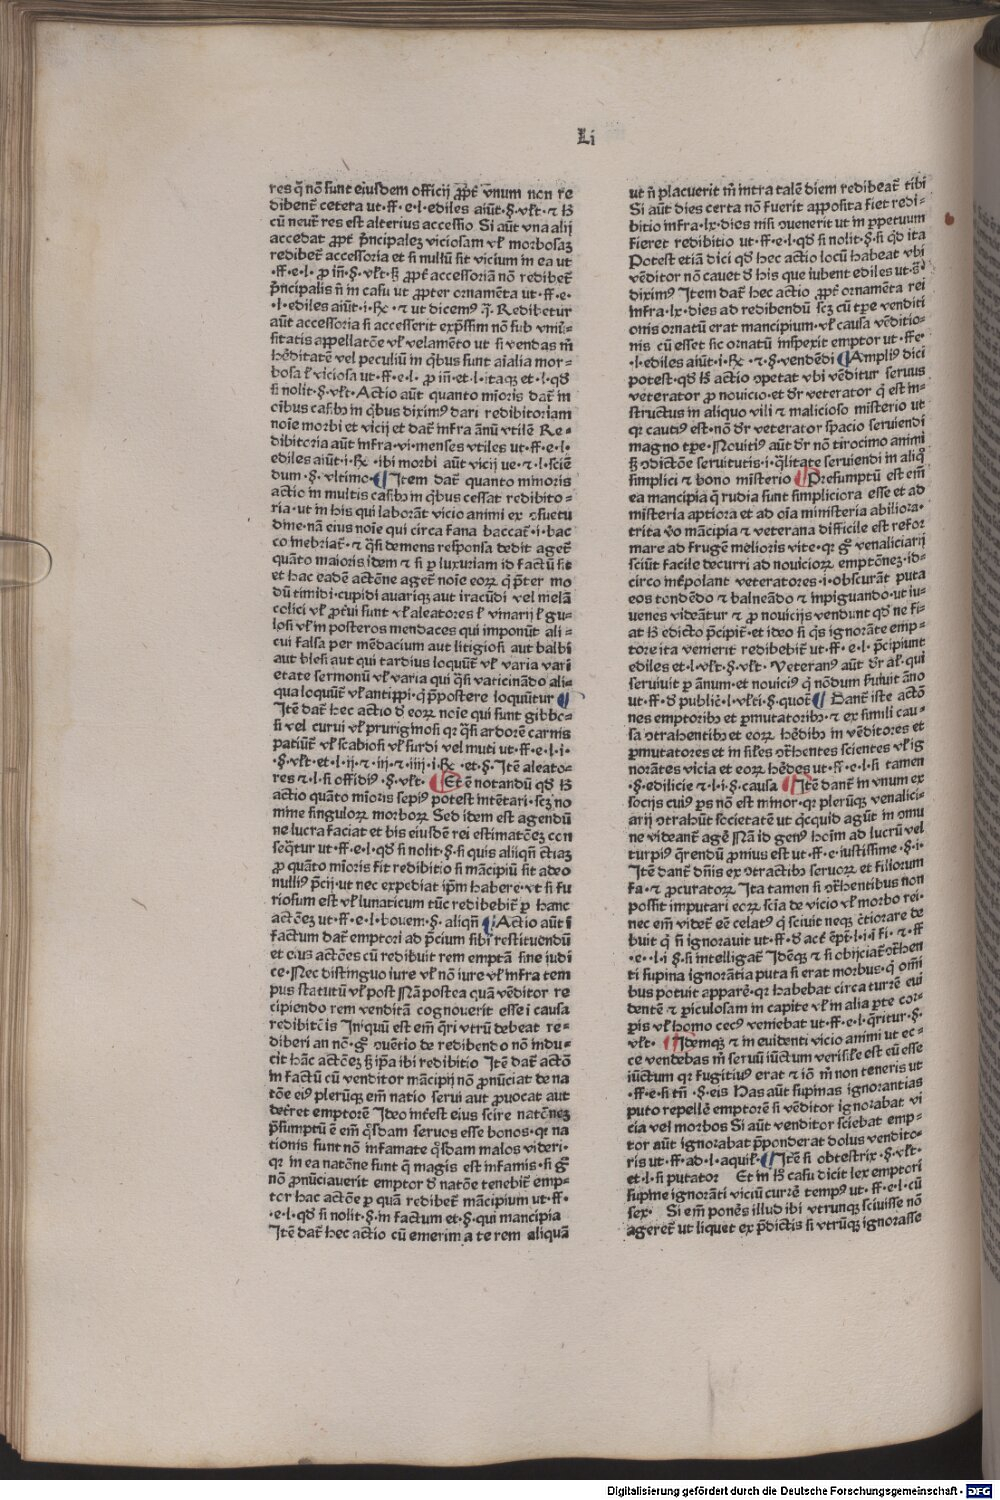 Li
res q̄ nō sunt eiusdem officij ꝓpt̄ vnum non re
dibent̄ cetera ut·ff·e·l·ediles aiūt·§·vƚt·⁊ hͦ
cū neut̄ res est alterius accessio Si aūt vna alij
accedat ꝓpt̄ p̄ncipalez viciosam vƚ morbosaz
redibet̄ accessoria et si nullū sit vicium in ea ut
·ff·e·l· ꝓ in̄·§·vƚt·sꝫ ꝓpt̄ accessoriā nō redibet̄
p̄ncipalis n̄ in casu ut ꝓpter ornamēta ut·ff·e·
·l·ediles aiūt·i·Rͨ ·⁊ ut dicemꝰ ·q̄· Redibetur
aūt accessoria si accesserit exp̄ssim nō sub vniū-
sitatis appellatōe vƚ velamēto ut si vendas m̄
hēditatē vel peculiū in q̄bus sunt aīalia mor-
bosa ƚ viciosa ut·ff·e·l· ꝓ in̄·et·l·itaqꝫ et·l·qd̄
si nolit·§·vƚt·Actio aūt quanto mīoris dat̄ in
oībus casibꝫ in q̄bus diximꝰ dari redibitoriam
noīe morbi et vicij et dat̄ infra ānū vtilē Re-
dibitoria aūt infra·vi·menses vtiles ut·ff·e·l·
ediles aiūt·i·Rͨ ·ibi morbi aūt vicij ue·⁊·l·sciē
dum·§·vltimo·¶ Item dat̄ quanto minoris
actio in multis casibꝫ in q̄bus cessat redibito-
ria·ut in his qui laborāt vicio animi ex ↄsuetu
dine·nā eius noīe qui circa fana baccat̄·i·bac
co inebriat̄·⁊ q̄si demens responsa dedit aget̄
quāto maioris idem ⁊ si ꝑ luxuriam id factū sit
et hac eadē actōne aget̄ noīe eoꝝ q̄ p̄ter mo
dū timidi·cupidi auariqꝫ aut iracūdi vel melā
colici vƚ ꝓt̄ui sunt vƚ aleatores ƚ vinarij ƚ gu-
losi vƚ in posteros mendaces qui imponūt ali-
cui falsa per mēdacium aut litigiosi aut balbi
aut blesi aut qui tardius loquūt̄ vƚ varia vari
etate sermonū vƚ varia qui q̄si vaticinādo ali-
qua loquūt̄ vƚ antippi·q̄ p̄postere loquūtur ¶
Itē dat̄ hec actio d̄ eoꝝ noīe qui sunt gibbo-
si vel curui vƚ pruriginosi qr q̄si ardorē carnis
patiūt̄ vƚ scabiosi vƚ surdi vel muti ut·ff·e·l·i·
·§·vƚt·et·l·ij·⁊·iij·⁊·iiij·i·Rͨ ·et·§·Itē aleato-
res ⁊·l·si offidiꝰ·§·vƚt· ¶ Et ē notandū qd̄ hͦ
actio quāto mīoris sepiꝰ potest intētari·scꝫ no
mine singuloꝝ morboꝝ Sed idem est agendū
ne lucra faciat et bis eiusdē rei estimatōeꝫ con
seq̄tur ut·ff·e·l·qd̄ si nolit·§·si quis aliqn̄ c̄tiaz
ꝓ quāto mīoris fit redibitio si mācipiū sit adeo
nulliꝰ p̄cij·ut nec expediat ip̄m habere·vt si fu
riosum est vƚ lunaticum tūc redibebit̄ ꝑ hanc
actōeꝫ ut·ff·e·l·bouem·§·aliqn̄ ¶ Actio aūt ī
factum dat̄ emptori ad p̄cium sibi restituendū
et eius actōes cū redibuit rem emptā sine iudi
ce·Nec distinguo iure vƚ nō iure vƚ infra tem
pus statutū vƚ post Nā postea quā vēditor re
cipiendo rem venditā cognouerit esse ī causa
redibitōis Iniquū est em̄ q̄ri vtrū debeat re-
diberi an nō·gͦ ↄuētio de redibendo nō indu-
cit hāc actōeꝫ sꝫ ip̄a ibi redibitio Itē dat̄ actō
in factū cū venditor mācipij nō ꝓnūciat de na
tōe eiꝰ plerūqꝫ em̄ natio serui aut ꝓuocat aut
det̄ret emptorē Ideo int̄est eius scire natōneꝫ
p̄sumptū ē em̄ q̄sdam seruos esse bonos·qr na
tionis sunt nō infamate q̄sdam malos videri·
qr in ea natōne sunt q̄ magis est infamis·si gͦ
nō ꝓnūciauerit emptor d̄ natōe tenebit̄ emp-
tor hac actōe ꝑ quā redibet̄ mācipium ut·ff·
·e·l·qd̄ si nolit·§·in factum et·§·qui mancipia
Itē dat̄ hec actio cū emerim a te rem aliquā
ut n̄ placuerit m̄ intra talē diem redibeat̄ tibi
Si aūt dies certa nō fuerit apposita fiet redi-
bitio infra·lx·dies nisi ↄuenerit ut in ꝑpetuum
fieret redibitio ut·ff·e·l·qd̄ si nolit·§·si qd̄ ita
Potest etiā dici qd̄ hec actio locū habeat vbi
vēditor nō cauet d̄ his que iubent ediles ut·s̄·
diximꝰ Item dat̄ hec actio ꝓpt̄ ornamēta rei
infra·lx·dies ad redibendū scꝫ cū tꝑe venditi
onis ornatū erat mancipium·vƚ causa vēditio-
nis cū esset sic ornatū inspexit emptor ut·ff·e·
·l·ediles aiūt·i·Rͨ ·⁊·§·vendēdi ¶ Ampliꝰ dici
potest·qd̄ hͦ actio ↄpetat vbi vēditur seruus
veterator ꝓ nouicio·et dr̄ veterator q̄ est in-
structus in aliquo vili ⁊ malicioso misterio ut
qr cautiꝰ est·nō dr̄ veterator spacio seruiendi
magno tꝑe·Nouitiꝰ aūt dr̄ nō tirocinio animi
sꝫ ↄdictōe seruitutis·i·q̄litate seruiendi in aliq̄
simplici ⁊ bono misterio ¶ Presumptū est em̄
ea mancipia q̄ rudia sunt simpliciora esse et ad
misteria aptiora et ad oīa ministeria abiliora·
trita v̄o mācipia ⁊ veterana difficile est refor
mare ad frugē melioris vite·qr gͦ venaliciarij
sciūt facile decurri ad nouicioꝝ emptōneꝫ·id-
circo int̄polant veteratores·i·obscurāt puta
eos tondēdo ⁊ balneādo ⁊ inpiguando·ut iu-
uenes videātur ⁊ ꝓ nouicijs vendunt qd̄ ne fi-
at hͦ edicto p̄cipit̄·et ideo si q̄s ignorāte emp-
tore ita venierit redibebit̄ ut·ff·e·l· p̄cipiunt
ediles et·l·vƚt·§·vƚt· Veteranꝰ aūt dr̄ aƚ·qui
seruiuit ꝑ ānum·et nouiciꝰ q̄ nōdum suiuit āno
ut·ff·d̄ public̄·l·vƚti·§·quot̄ ¶ Dant̄ iste actō
nes emptoribꝫ et ꝑmutatoribꝫ·⁊ ex simili cau-
sa ↄtrahentibꝫ et eoꝝ hēdibꝫ in vēditores et
ꝑmutatores et in siƚes ↄt̄hentes scientes vƚ ig
norātes vicia et eoꝝ hēdes ut·ff·e·l·si tamen
·§·edilicie ⁊·l·i·§·causa ¶ Itē dant̄ in vnum ex
socijs cuiꝰ ꝑs nō est minor·qr plerūqꝫ venalici-
arij ↄtrahūt societatē ut q̄cquid agūt in ↄmu
ne videant̄ agē Nā id genꝰ hoīm ad lucrū vel
turpiꝰ q̄rendū ꝓnius est ut·ff·e·iustissime·§·i·
Itē dant̄ dn̄is ex ↄtractibꝫ seruoꝝ et filiorum
fa·⁊ ꝓcuratoꝝ Ita tamen si ↄt̄hentibus non
possit imputari eoꝝ scīa de vicio vƚ morbo rei·
nec em̄ videt̄ eē celatꝰ q̄ sciuit neqꝫ c̄tiorare de
buit q̄ n̄ ignorauit ut·ff·d̄ act̄ ēpt̄·l·i·ī fi·⁊·ff
·e··l·i §·si intelligat̄ Idēqꝫ ⁊ si obijciat̄ ↄt̄hen
ti supina ignorātia puta si erat morbus·q̄ om̄i
bus potuit apparē·qr habebat circa turrē eui
dentē ⁊ ꝑiculosam in capite vƚ in alia ꝑte cor-
ꝑis vƚ homo cecꝰ veniebat ut·ff·e·l·q̄ritur·§·
vƚt· ¶ Idemqꝫ ⁊ in euidenti vicio animi ut ec-
ce vendebas m̄ seruū iūctum verisiƚe est eū esse
iūctum qr fugitiuꝰ erat ⁊ iō m̄ non teneris ut
·ff·e·si tn̄ ·§·eis Has aūt supinas ignorantias
puto repellē emptorē si vēditor ignorabat vi
cia vel morbos Si aūt venditor sciebat emp-
tor aūt ignorabat p̄ponderat dolus vendito-
ris ut·ff·ad·l·aquiƚ·¶ Itē si obtestrix·§·vƚt·
et·l·si putator Et in hͦ casu dicit lex emptori
supine ignorāti viciū currē tempꝰ ut·ff·e·l·cū
sex· Si em̄ ponēs illud ibi vtrunqꝫ sciuisse nō
ageret̄ ut liquet ex p̄dictis si vtrūqꝫ ignorasse
Digitalisierung gefördert durch die Deutsche Forschungsgemeinschaft - DFG